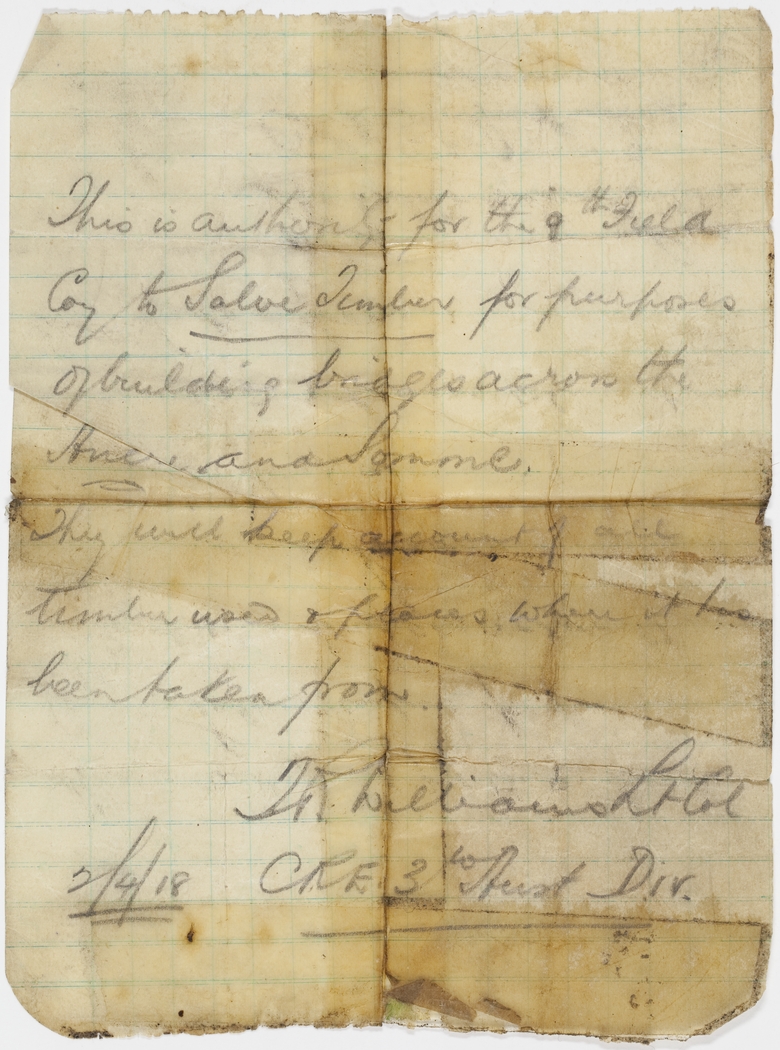 This is authority for the 9th Field
Coy to Salve Timber for purposes
of building bridges across the
Ancre and Somme.
They will keep account of all
timber used & places where it has
been taken from.
T.R. Williams Lt Col
CRE. 3rd Aust Div.
2/4/18